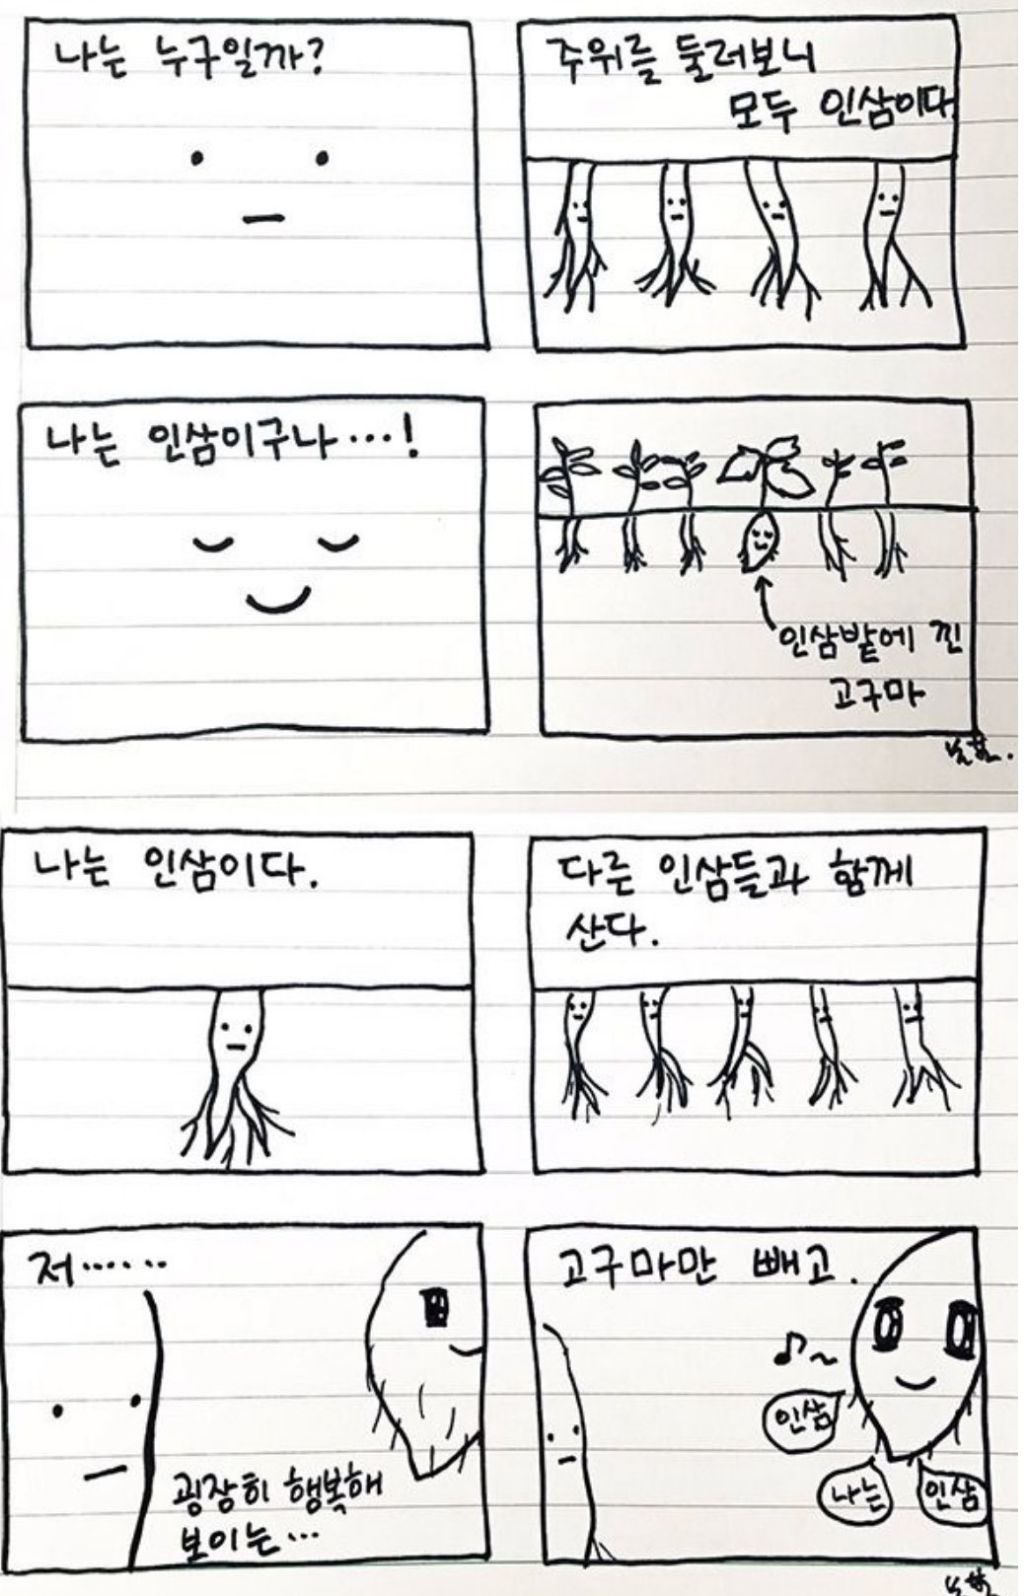 나는 누구일까?
주위를 둘러보니
모두 인삼이다
나는 인삼이구나...!
인삼밭에 낀
고구마
나는 인삼이다.
다른 인삼들과 함께
산다.
저......
굉장히 행복해
보이는...
고구마만 빼고.
인삼
나는
인삼